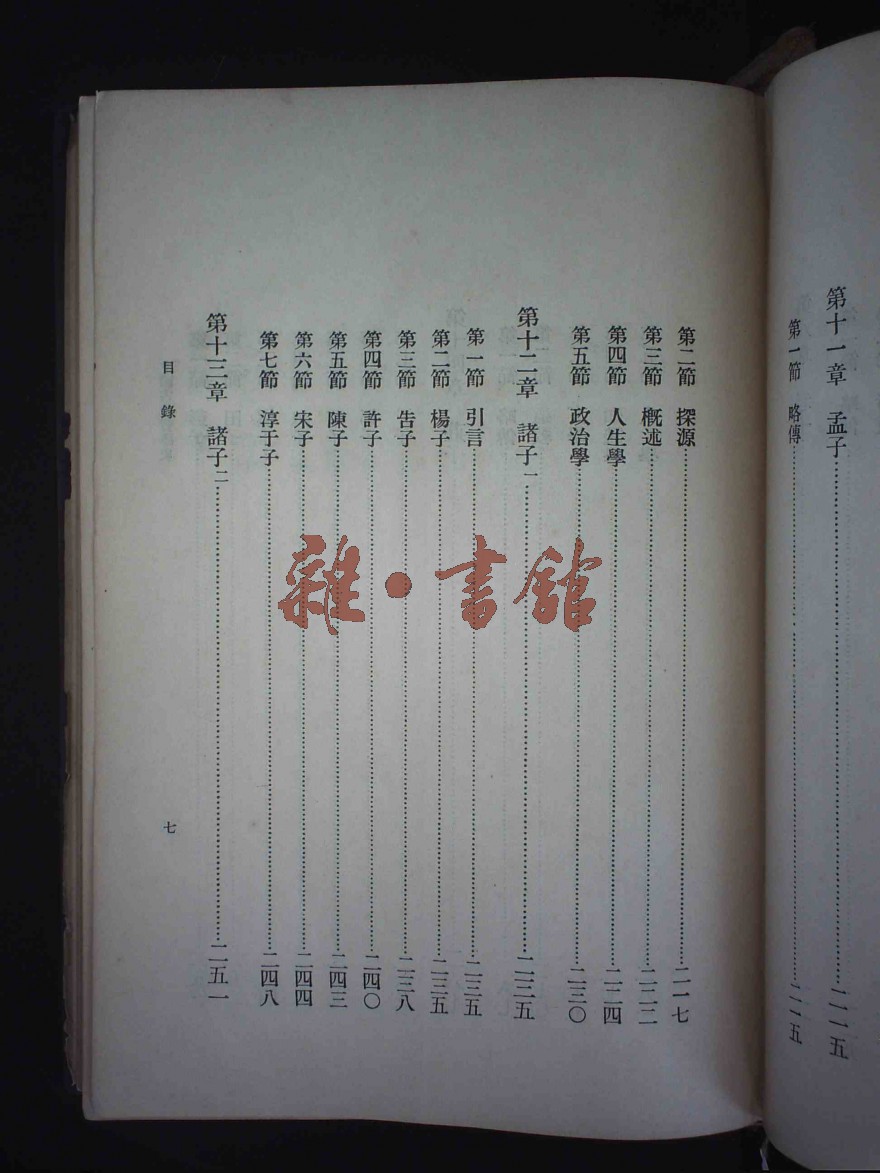 第十一章　孟子……二一五
第一節　略傳……二一五
第二節　探源……二一七
第三節　概述……二二二
第四節　人生學……二二四
第五節　政治學……二三〇
第十二章　諸子一……二三五
第一節　引言……二三五
第二節　楊子……二三五
第三節　告子……二三八
第四節　許子……二四〇
第五節　陳子……二四三
第六節　宋子……二四四
第七節　淳于子……二四八
第十三章　諸子二……二五一
目錄
七
雜·書館